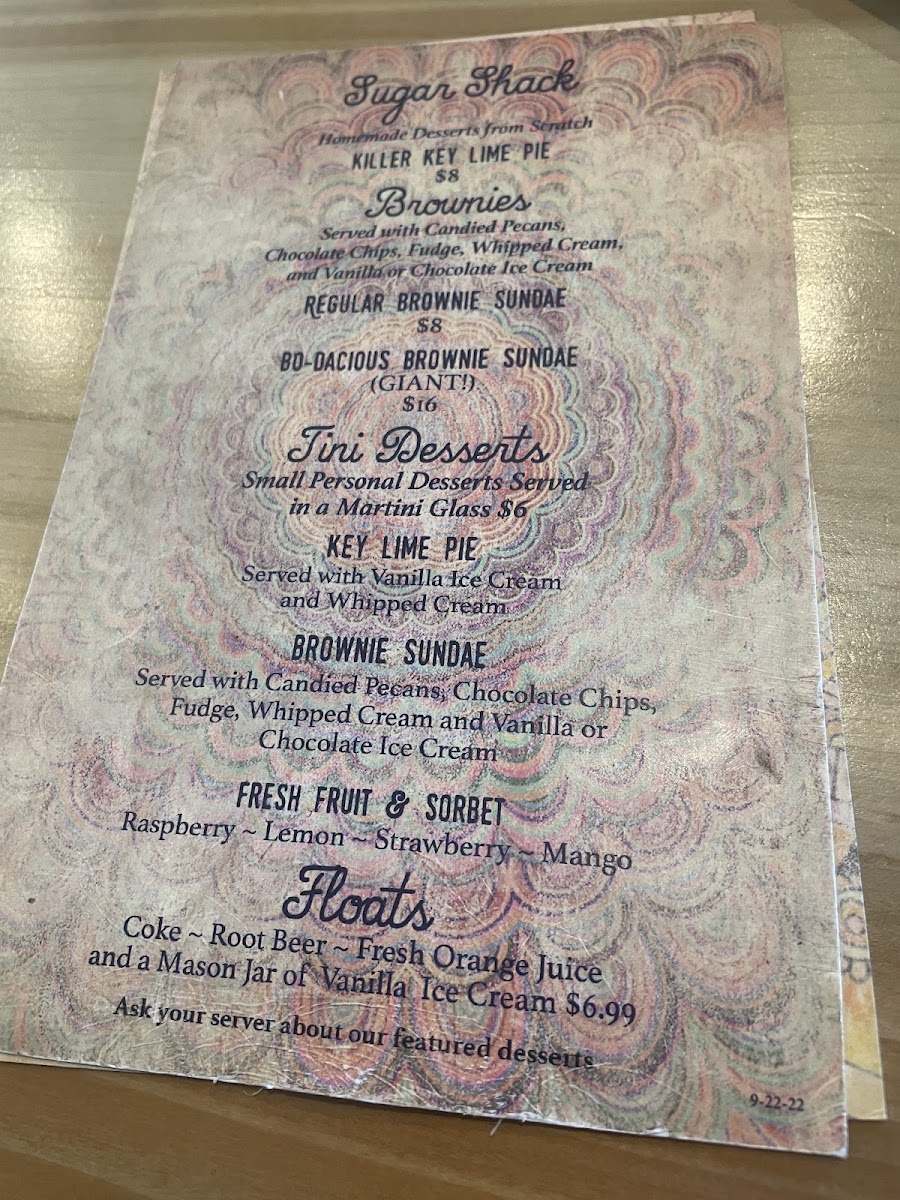 Sugar Shack
Homemade Desserts from Scratch
KILLER KEY LIME PIE
$8
Brownies
Served with Candied Pecans,
Chocolate Chips, Fudge, Whipped Cream,
and Vanilla or Chocolate Ice Cream
REGULAR BROWNIE SUNDAE
$8
BO-DACIOUS BROWNIE SUNDAE
(GIANT!)
$16
Tini Desserts
Small Personal Desserts Served
in a Martini Glass $6
KEY LIME PIE
Served with Vanilla Ice Cream
and Whipped Cream
BROWNIE SUNDAE
Served with Candied Pecans, Chocolate Chips,
Fudge, Whipped Cream and Vanilla or
Chocolate Ice Cream
FRESH FRUIT & SORBET
Raspberry ~ Lemon ~ Strawberry ~ Mango
Floats
Coke ~ Root Beer ~ Fresh Orange Juice
and a Mason Jar of Vanilla Ice Cream $6.99
Ask your server about our featured desserts
9-22-22